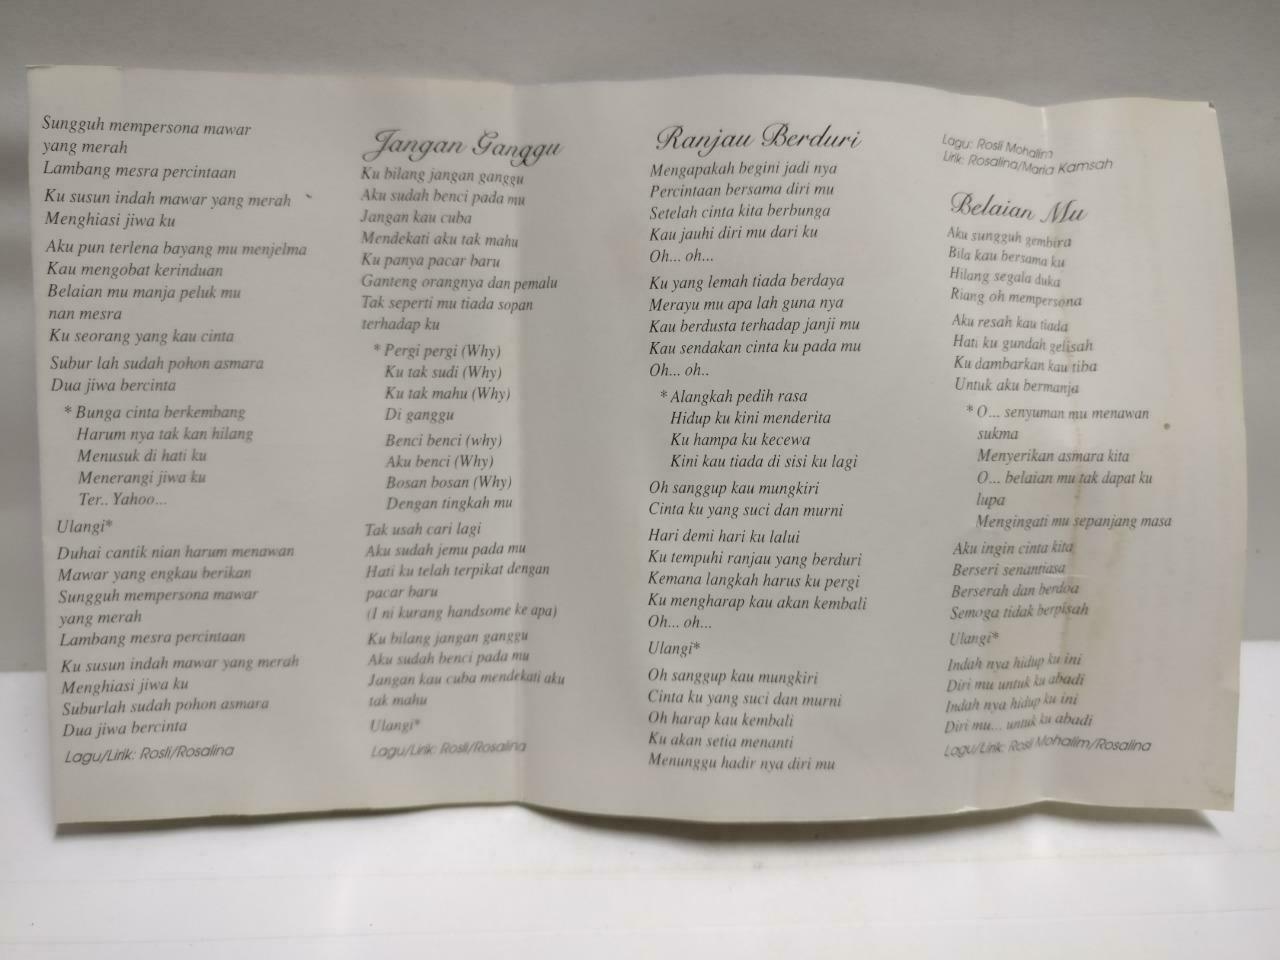 Sungguh mempersona mawar
yang merah
Lambang mesra percintaan
Ku susun indah mawar yang merah
Menghiasi jiwa ku
Aku pun terlena bayang mu menjelma
Kau mengobat kerinduan
Belaian mu manja peluk mu
nan mesra
Ku seorang yang kau cinta
Subur lah sudah pohon asmara
Dua jiwa bercinta
* Bunga cinta berkembang
Harum nya tak kan hilang
Menusuk di hati ku
Menerangi jiwa ku
Ter.. Yahoo...
Ulangi*
Duhai cantik nian harum menawan
Mawar yang engkau berikan
Sungguh mempersona mawar
yang merah
Lambang mesra percintaan
Ku susun indah mawar yang merah
Menghiasi jiwa ku
Suburlah sudah pohon asmara
Dua jiwa bercinta
Lagu/Lirik: Rosli/Rosalina
Jangan Ganggu
Ku bilang jangan ganggu
Aku sudah benci pada mu
Jangan kau cuba
Mendekati aku tak mahu
Ku panya pacar baru
Ganteng orangnya dan pemalu
Tak seperti mu tiada sopan
terhadap ku
* Pergi pergi (Why)
Ku tak sudi (Why)
Ku tak mahu (Why)
Di ganggu
Benci benci (why)
Aku benci (Why)
Bosan bosan (Why)
Dengan tingkah mu
Tak usah cari lagi
Aku sudah jemu pada mu
Hati ku telah terpikat dengan
pacar baru
(I ni kurang handsome ke apa)
Ku bilang jangan ganggu
Aku sudah benci pada mu
Jangan kau cuba mendekati aku
tak mahu
Ulangi*
Lagu/Lirik: Rosli/Rosalina
Ranjau Berduri
Mengapakah begini jadi nya
Percintaan bersama diri mu
Setelah cinta kita berbunga
Kau jauhi diri mu dari ku
Oh... oh...
Ku yang lemah tiada berdaya
Merayu mu apa lah guna nya
Kau berdusta terhadap janji mu
Kau sendakan cinta ku pada mu
Oh... oh..
* Alangkah pedih rasa
Hidup ku kini menderita
Ku hampa ku kecewa
Kini kau tiada di sisi ku lagi
Oh sanggup kau mungkiri
Cinta ku yang suci dan murni
Hari demi hari ku lalui
Ku tempuhi ranjau yang berduri
Kemana langkah harus ku pergi
Ku mengharap kau akan kembali
Oh... oh...
Ulangi*
Oh sanggup kau mungkiri
Cinta ku yang suci dan murni
Oh harap kau kembali
Ku akan setia menanti
Menunggu hadir nya diri mu
Lagu: Rosli Mohalim
Lirik: Rosalina/Maria Kamsah
Belaian Mu
Aku sungguh gembira
Bila kau bersama ku
Hilang segala duka
Riang oh mempersona
Aku resah kau tiada
Hati ku gundah gelisah
Ku dambarkan kau tiba
Untuk aku bermanja
* O... senyuman mu menawan
sukma
Menyerikan asmara kita
O... belaian mu tak dapat ku
lupa
Mengingati mu sepanjang masa
Aku ingin cinta kita
Berseri senantiasa
Berserah dan berdoa
Semoga tidak berpisah
Ulangi*
Indah nya hidup ku ini
Diri mu untuk ku abadi
Indah nya hidup ku ini
Diri mu... untuk ku abadi
Lagu/Lirik: Rosli Mohalim/Rosalina